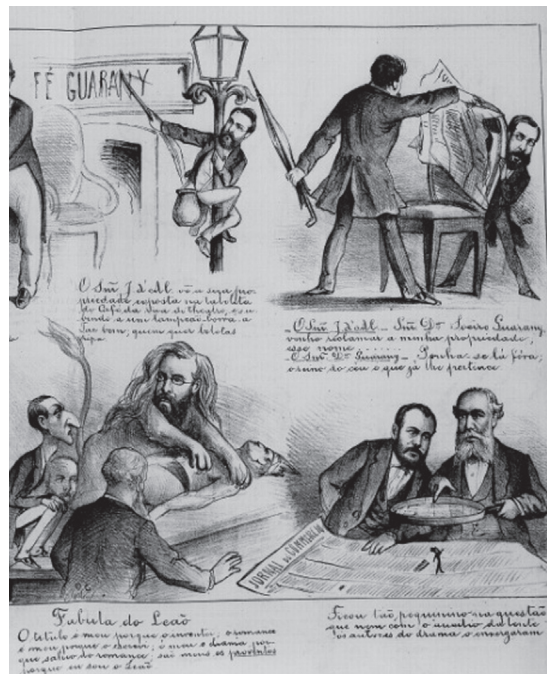 FÉ GUARANY
O Snr. J. d'Al. vê a sua pro-
priedade exposta na taboleta
do Café da rua do theatro, e su-
bindo a um lampeão borra a
Faz bem; quem quer
_ O Snr. J. d'Al. _ Snr. Dr. Soeiro Guarany,
venho reclamar a minha propriedade,
esse nome........
_ O Snr. Dr. Guarany _ Ponha-se lá fóra,
o seu a seu o que já lhe pertence
JORNAL DO COMMERCIO
Fabula do Leão
O titulo é meu porque o inventei; o romance
é meu porque o escrevi; é meu o drama por-
que sahio do romance; são meus os proventos
porque eu sou o Leão
Ficou tão pequenino na questão
que nem com o auxilio da lente
os autores do drama o enxergaram